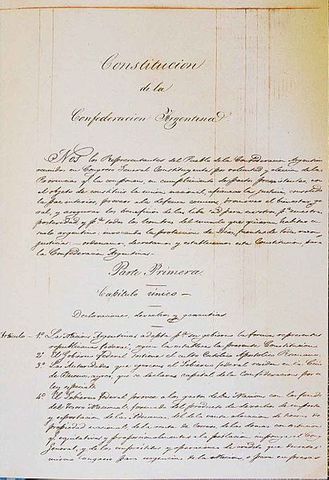 Constitucion
de la
Confederacion Argentina
Nos los Representantes del Pueblo de la Confederacion Argentina
reunidos en Congreso General Constituyente por voluntad y eleccion de las
Provincias que la componen en cumplimiento de pactos preexistentes con
el objeto de constituir la union nacional, afianzar la justicia, consolidar
la paz interior, proveer a la defensa comun, promover el bienestar gene
ral, y asegurar los beneficios de la libertad para nosotros, p.ª nuestra
posteridad y p.ª todos los hombres del mundo que quieran habitar en el
suelo argentino; invocando la proteccion de Dios, fuente de toda razon y
justicia: ordenamos, decretamos y establecemos esta Constitucion, para
la Confederacion Argentina.
Parte Primera.
Capitulo Único
Declaraciones, derechos y garantias
Articulo 1º La Nacion Argentina adopta p.ª su gobierno la forma representativa
republicana federal, segun la establece la presente Constitucion
2º El Gobierno Federal sostiene el culto Catolico Apostolico Romano.
3º Las Autoridades que ejercen el Gobierno federal residen en la Ciudad
de Buenos Ayres, que se declara capital de la Confederacion por una
ley especial.
4º El Gobierno Federal provee a los gastos de la Nacion con los fondos
del Tesoro Nacional, formado del producto de derechos de importacion
y esportacion de las Aduanas, del de la venta o locacion de tierras de
propiedad nacional, de la renta de Correos, de las demas contribuciones
que equitativa y proporcionalmente a la poblacion imponga el Congreso
General, y de los emprestitos y operaciones de credito que decrete el
mismo Congreso para urgencias de la Nacion o para empresas